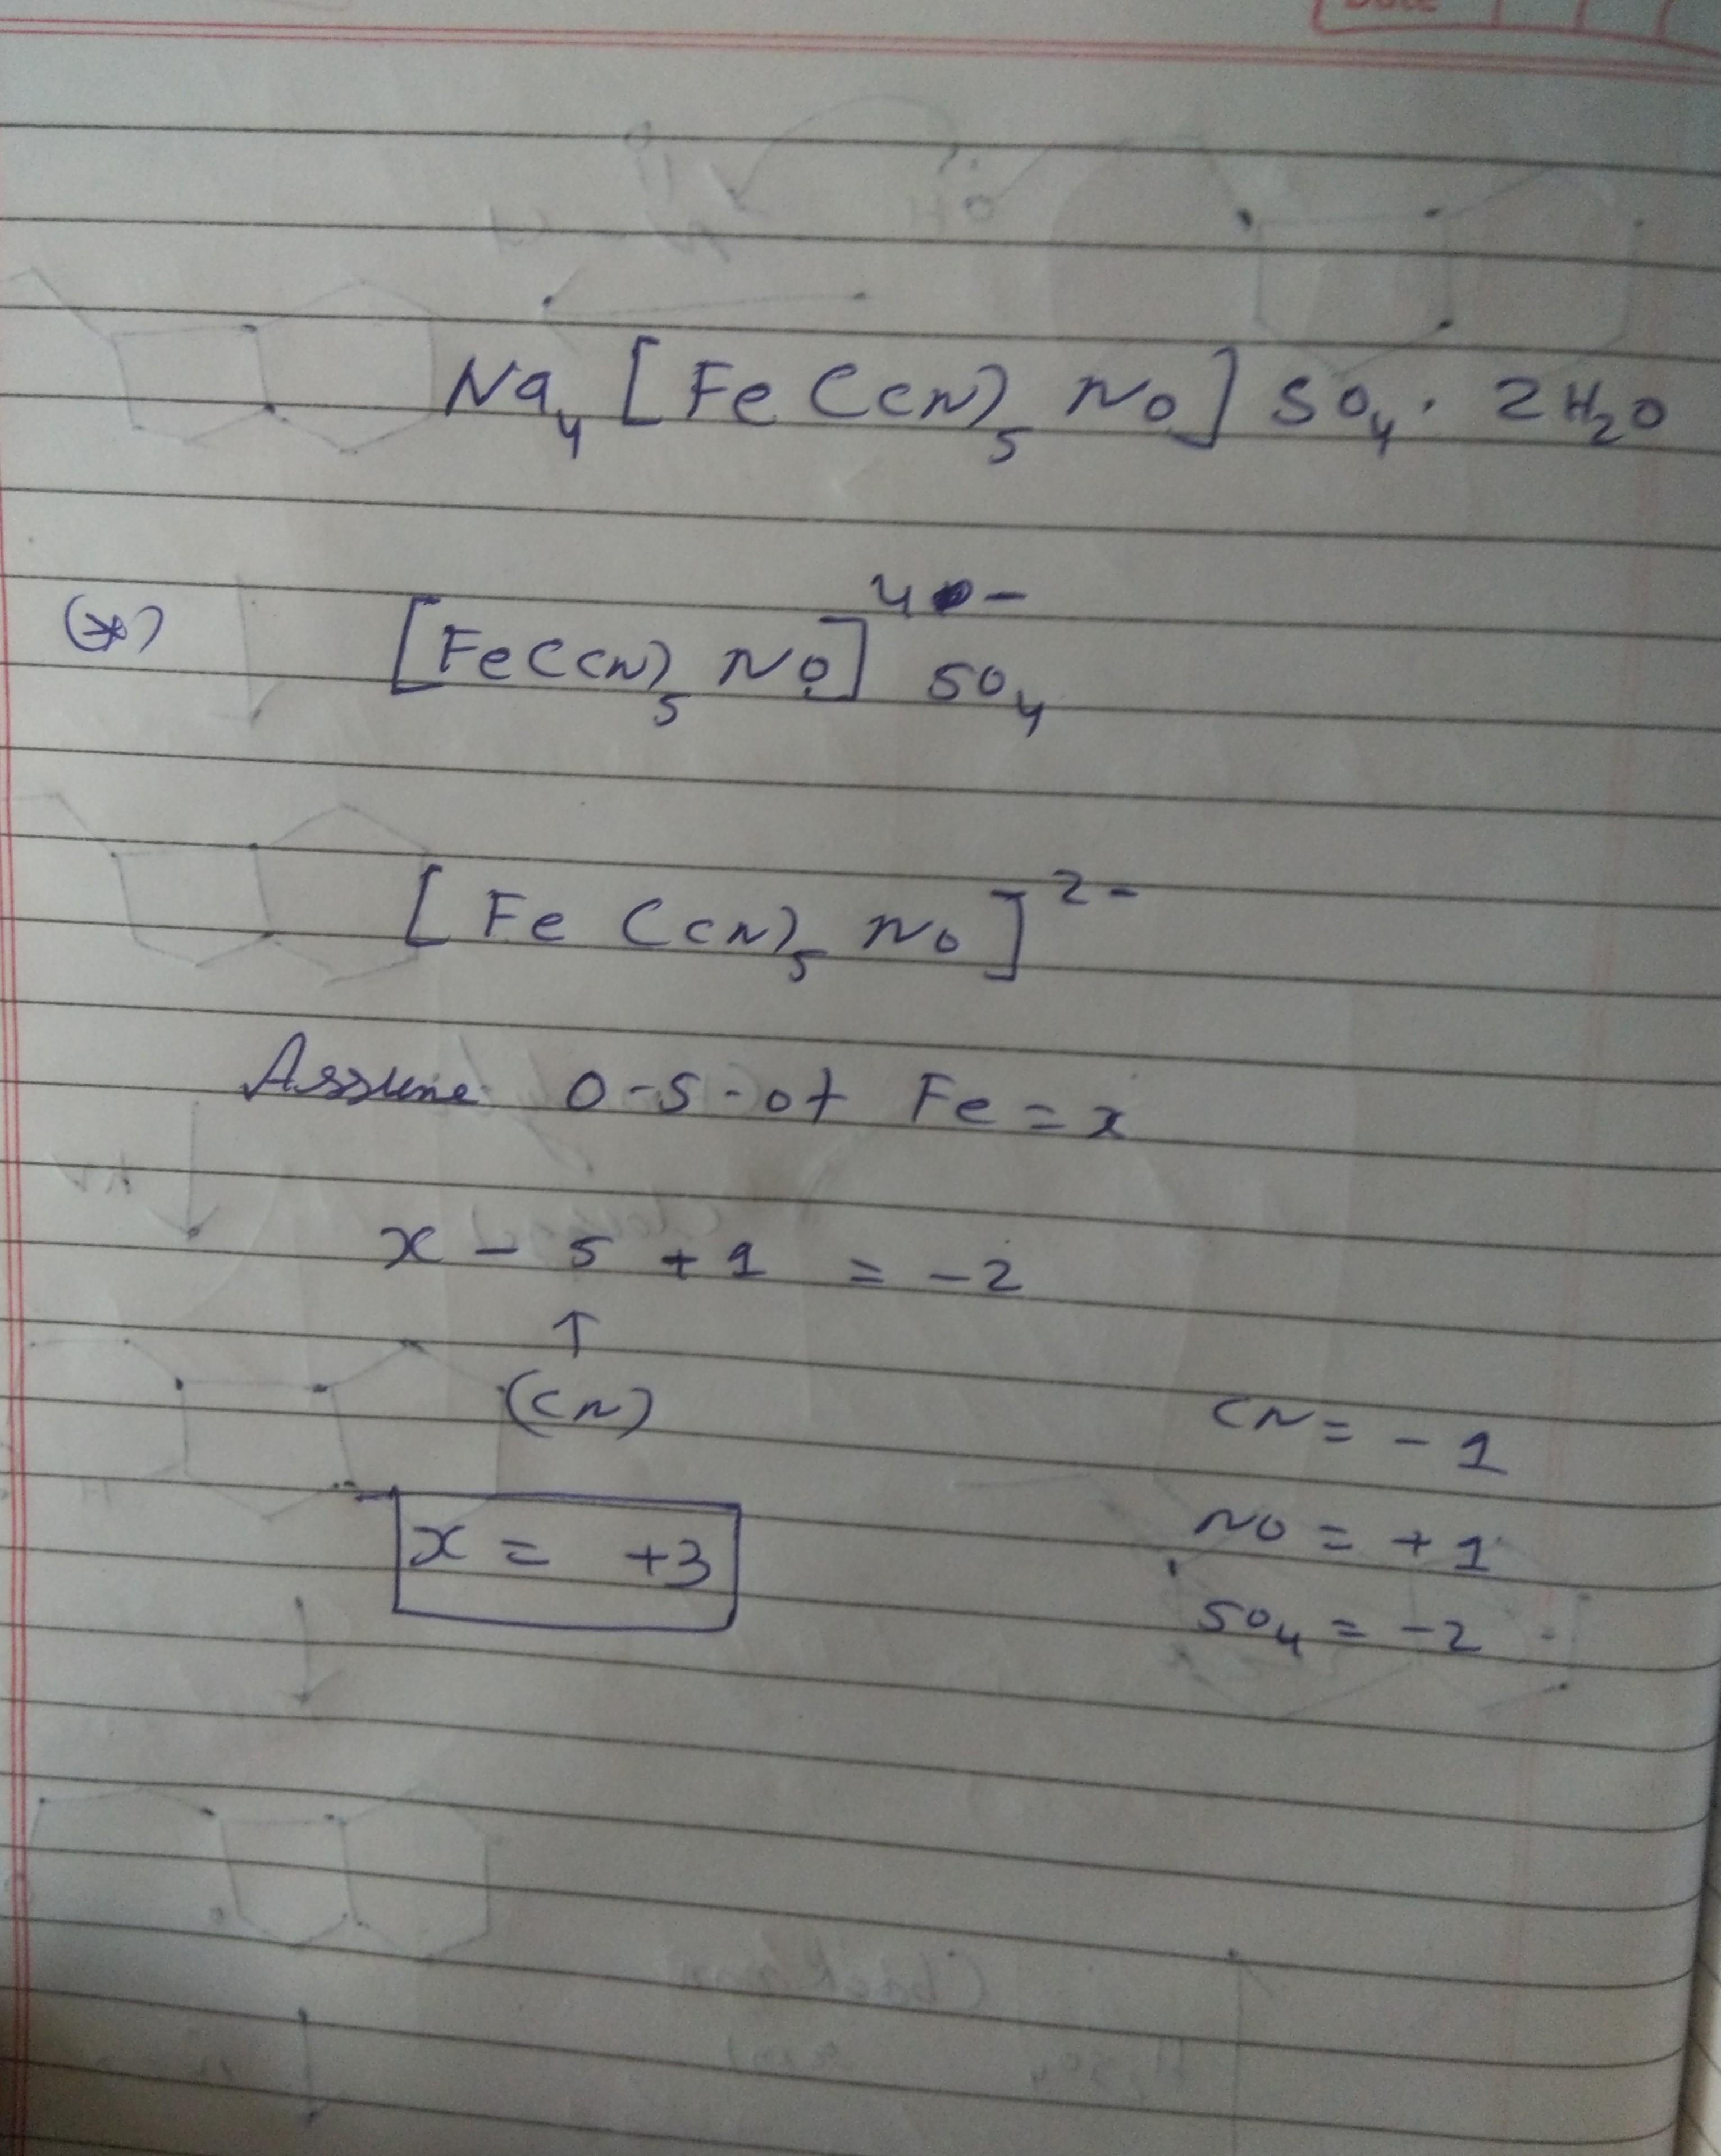 Date
Na₄ [Fe (CN)₅ NO] SO₄ · 2H₂O
(*) [Fe(CN)₅ NO]⁴⁻ SO₄
[Fe (CN)₅ NO]²⁻
Assume O-S-of Fe = x
x - 5 + 1 = -2
↑
(CN)
CN = -1
x = +3
NO = +1
SO₄ = -2